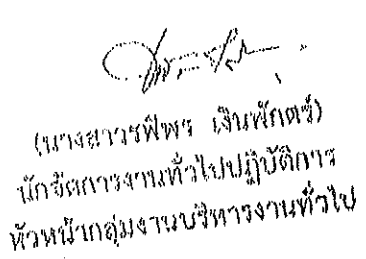 (นางสาวรพีพร เงินพักตร์)
นักจัดการงานทั่วไปปฏิบัติการ
หัวหน้ากลุ่มงานบริหารงานทั่วไป